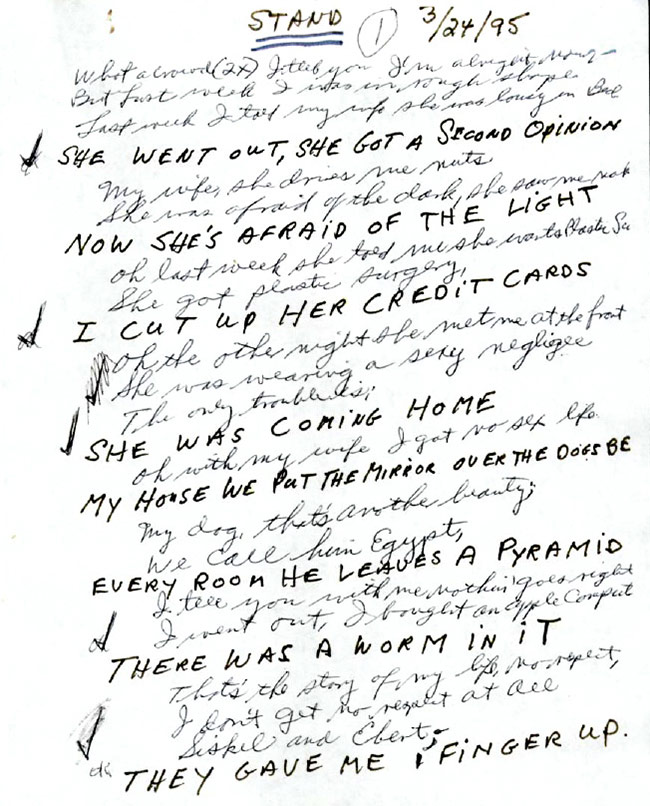 STAND 1 3/24/95
What a crowd (2x) I tell you I'm alright now-
But last week I was in rough shape
Last week I told my wife she was lousy in Bed
SHE WENT OUT, SHE GOT A SECOND OPINION
My wife, she drives me nuts
She was afraid of the dark, she saw me nak
NOW SHE'S AFRAID OF THE LIGHT
oh last week she told me she wants Plastic Su
She got plastic surgery,
I CUT UP HER CREDIT CARDS
oh the other night she met me at the front
She was wearing a sexy negligee
The only trouble is;
SHE WAS COMING HOME
oh with my wife I got no sex life
MY HOUSE WE PUT THE MIRROR OVER THE DOGS BE
My dog, that's another beauty;
We call him Egypt,
EVERY ROOM HE LEAVES A PYRAMID
I tell you with me nothin' goes right
I went out, I bought an apple Comput
THERE WAS A WORM IN IT
That's the story of my life, no respect,
I don't get no respect at all
Siskel and Ebert,
ok THEY GAVE ME 1 FINGER UP.